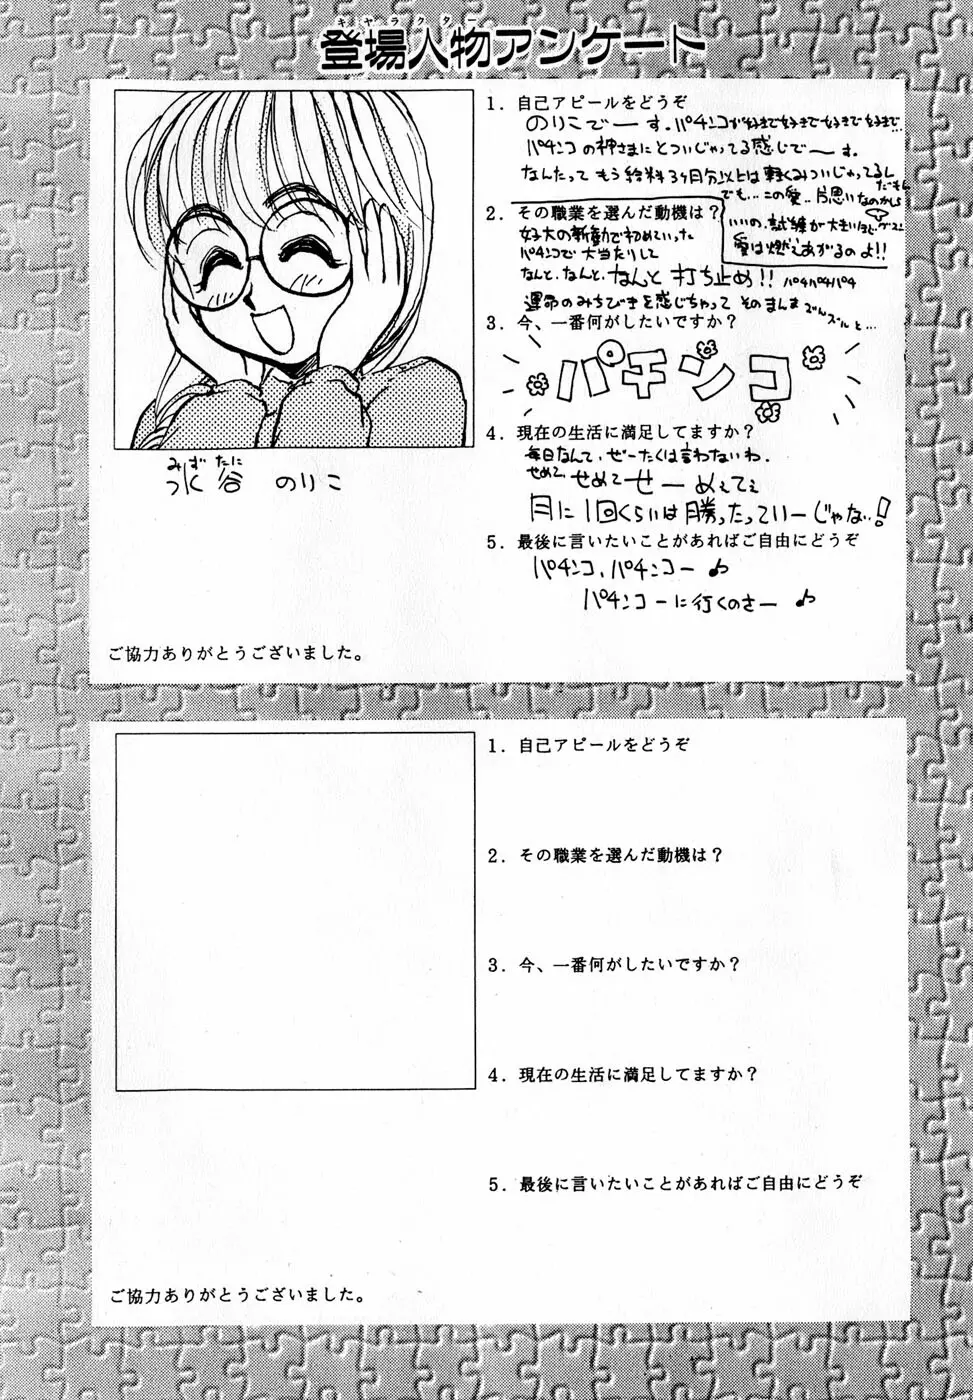 キャラクター
登場人物アンケート
1．自己アピールをどうぞ
のりこでーす．パチンコが好きで好きで好きで好きで…
パチンコの神さまにとついじゃってる感じでーす．
なんたって もう給料3ヶ月分以上は軽くみついじゃってるし
でも…この愛‥片思いなのかしら
いいの、試練が大きいほど
愛は燃えあがるのよ!!
2．その職業を選んだ動機は？
初めていった
パチンコで大当たりして
なんと、なんと、なんと 打ち止め!! パチパチパチ
運命のみちびきを感じちゃって そのまんま ずんズルと…
3．今、一番何がしたいですか？
パチンコ
4．現在の生活に満足してますか？
毎日なんて、ぜーたくは言わないわ．
せめて せめて せーめぇてぇ
月に1回くらいは勝ったっていーじゃない!
5．最後に言いたいことがあればご自由にどうぞ
パチンコ、パチンコー♪
パチンコーに行くのさー♪
みずたに
水谷 のりこ
ご協力ありがとうございました。
1．自己アピールをどうぞ
2．その職業を選んだ動機は？
3．今、一番何がしたいですか？
4．現在の生活に満足してますか？
5．最後に言いたいことがあればご自由にどうぞ
ご協力ありがとうございました。